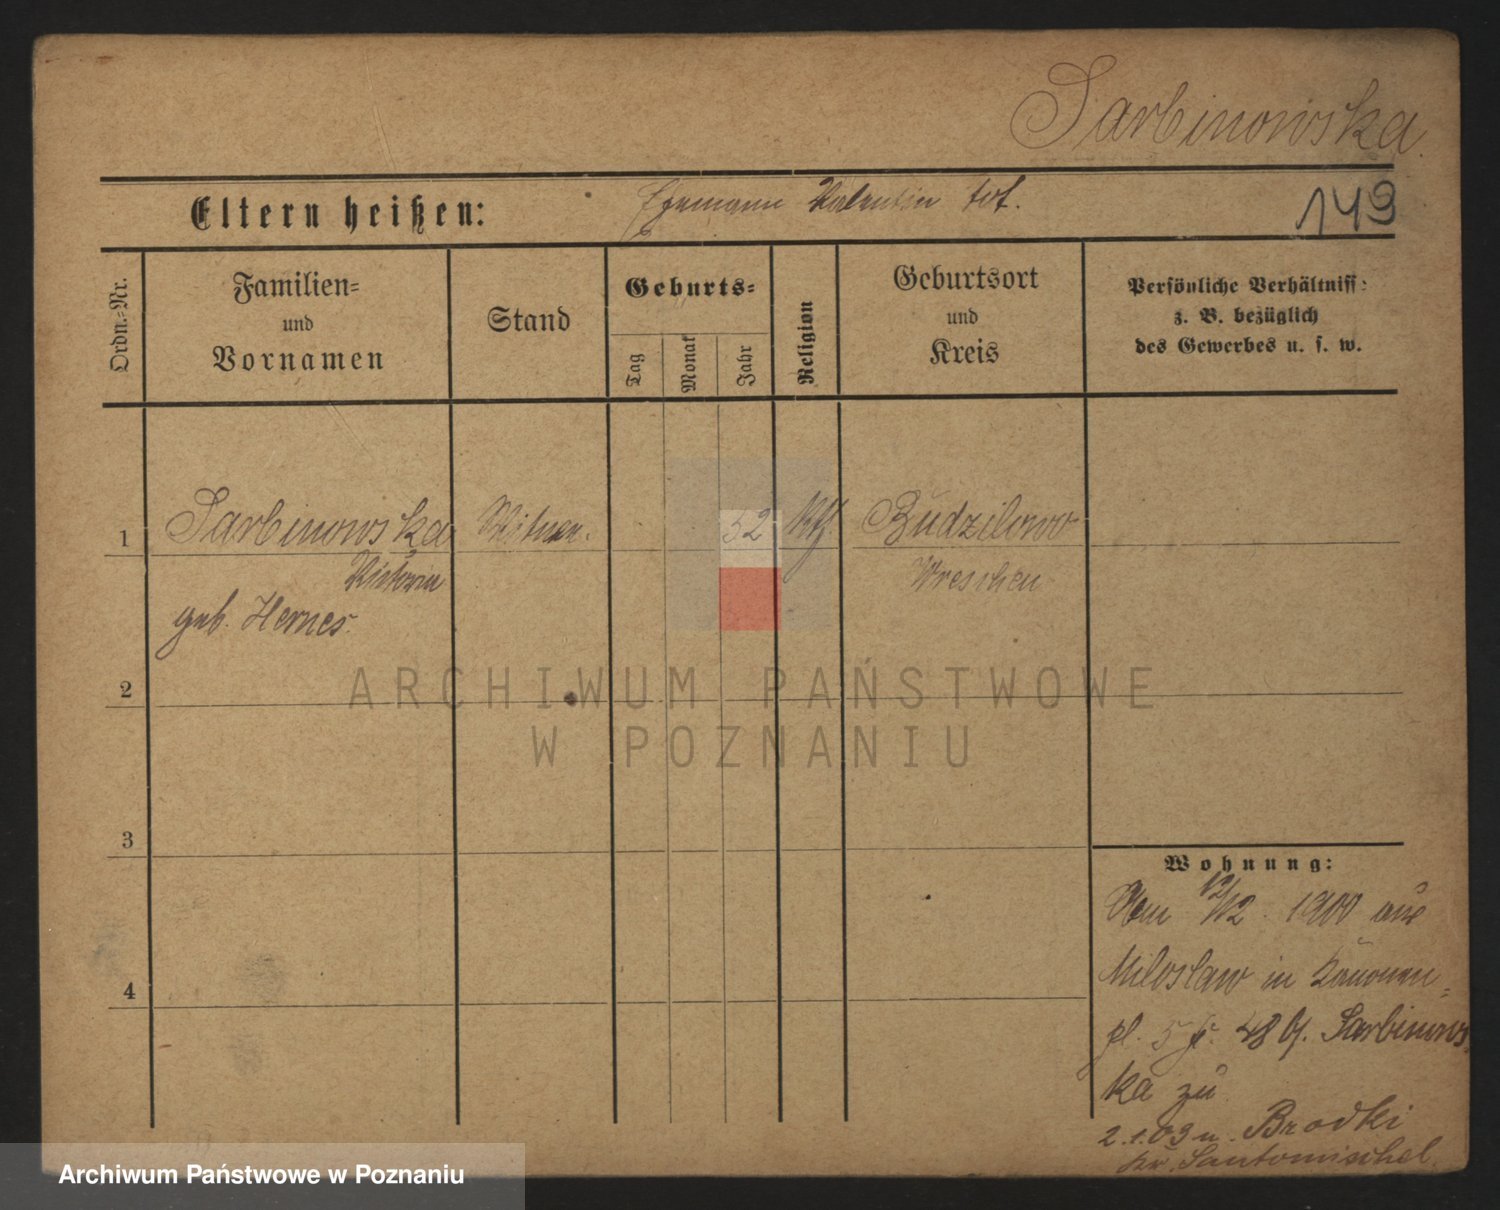 Sarbinowska
Eltern heißen: Ehemann Valentin tot.
149
Ordn.-Nr.
Familien-
und
Vornamen
Stand
Geburts-
Tag
Monat
Jahr
Religion
Geburtsort
und
Kreis
Persönliche Verhältniss:
z. B. bezüglich
des Gewerbes u. s. w.
1
Sarbinowska
Victoria
geb. Hernes.
52
Kth.
Budzilowo
Wreschen
2
3
4
Wohnung:
Vom 12/12. 1900 aus
Miloslaw in Kanonen-
pl. 5 48 Sarbinows
ka zu
2.1.03 n. Brodki
Kr. Santomischel.
ARCHIWUM PAŃSTWOWE
W POZNANIU
Archiwum Państwowe w Poznaniu